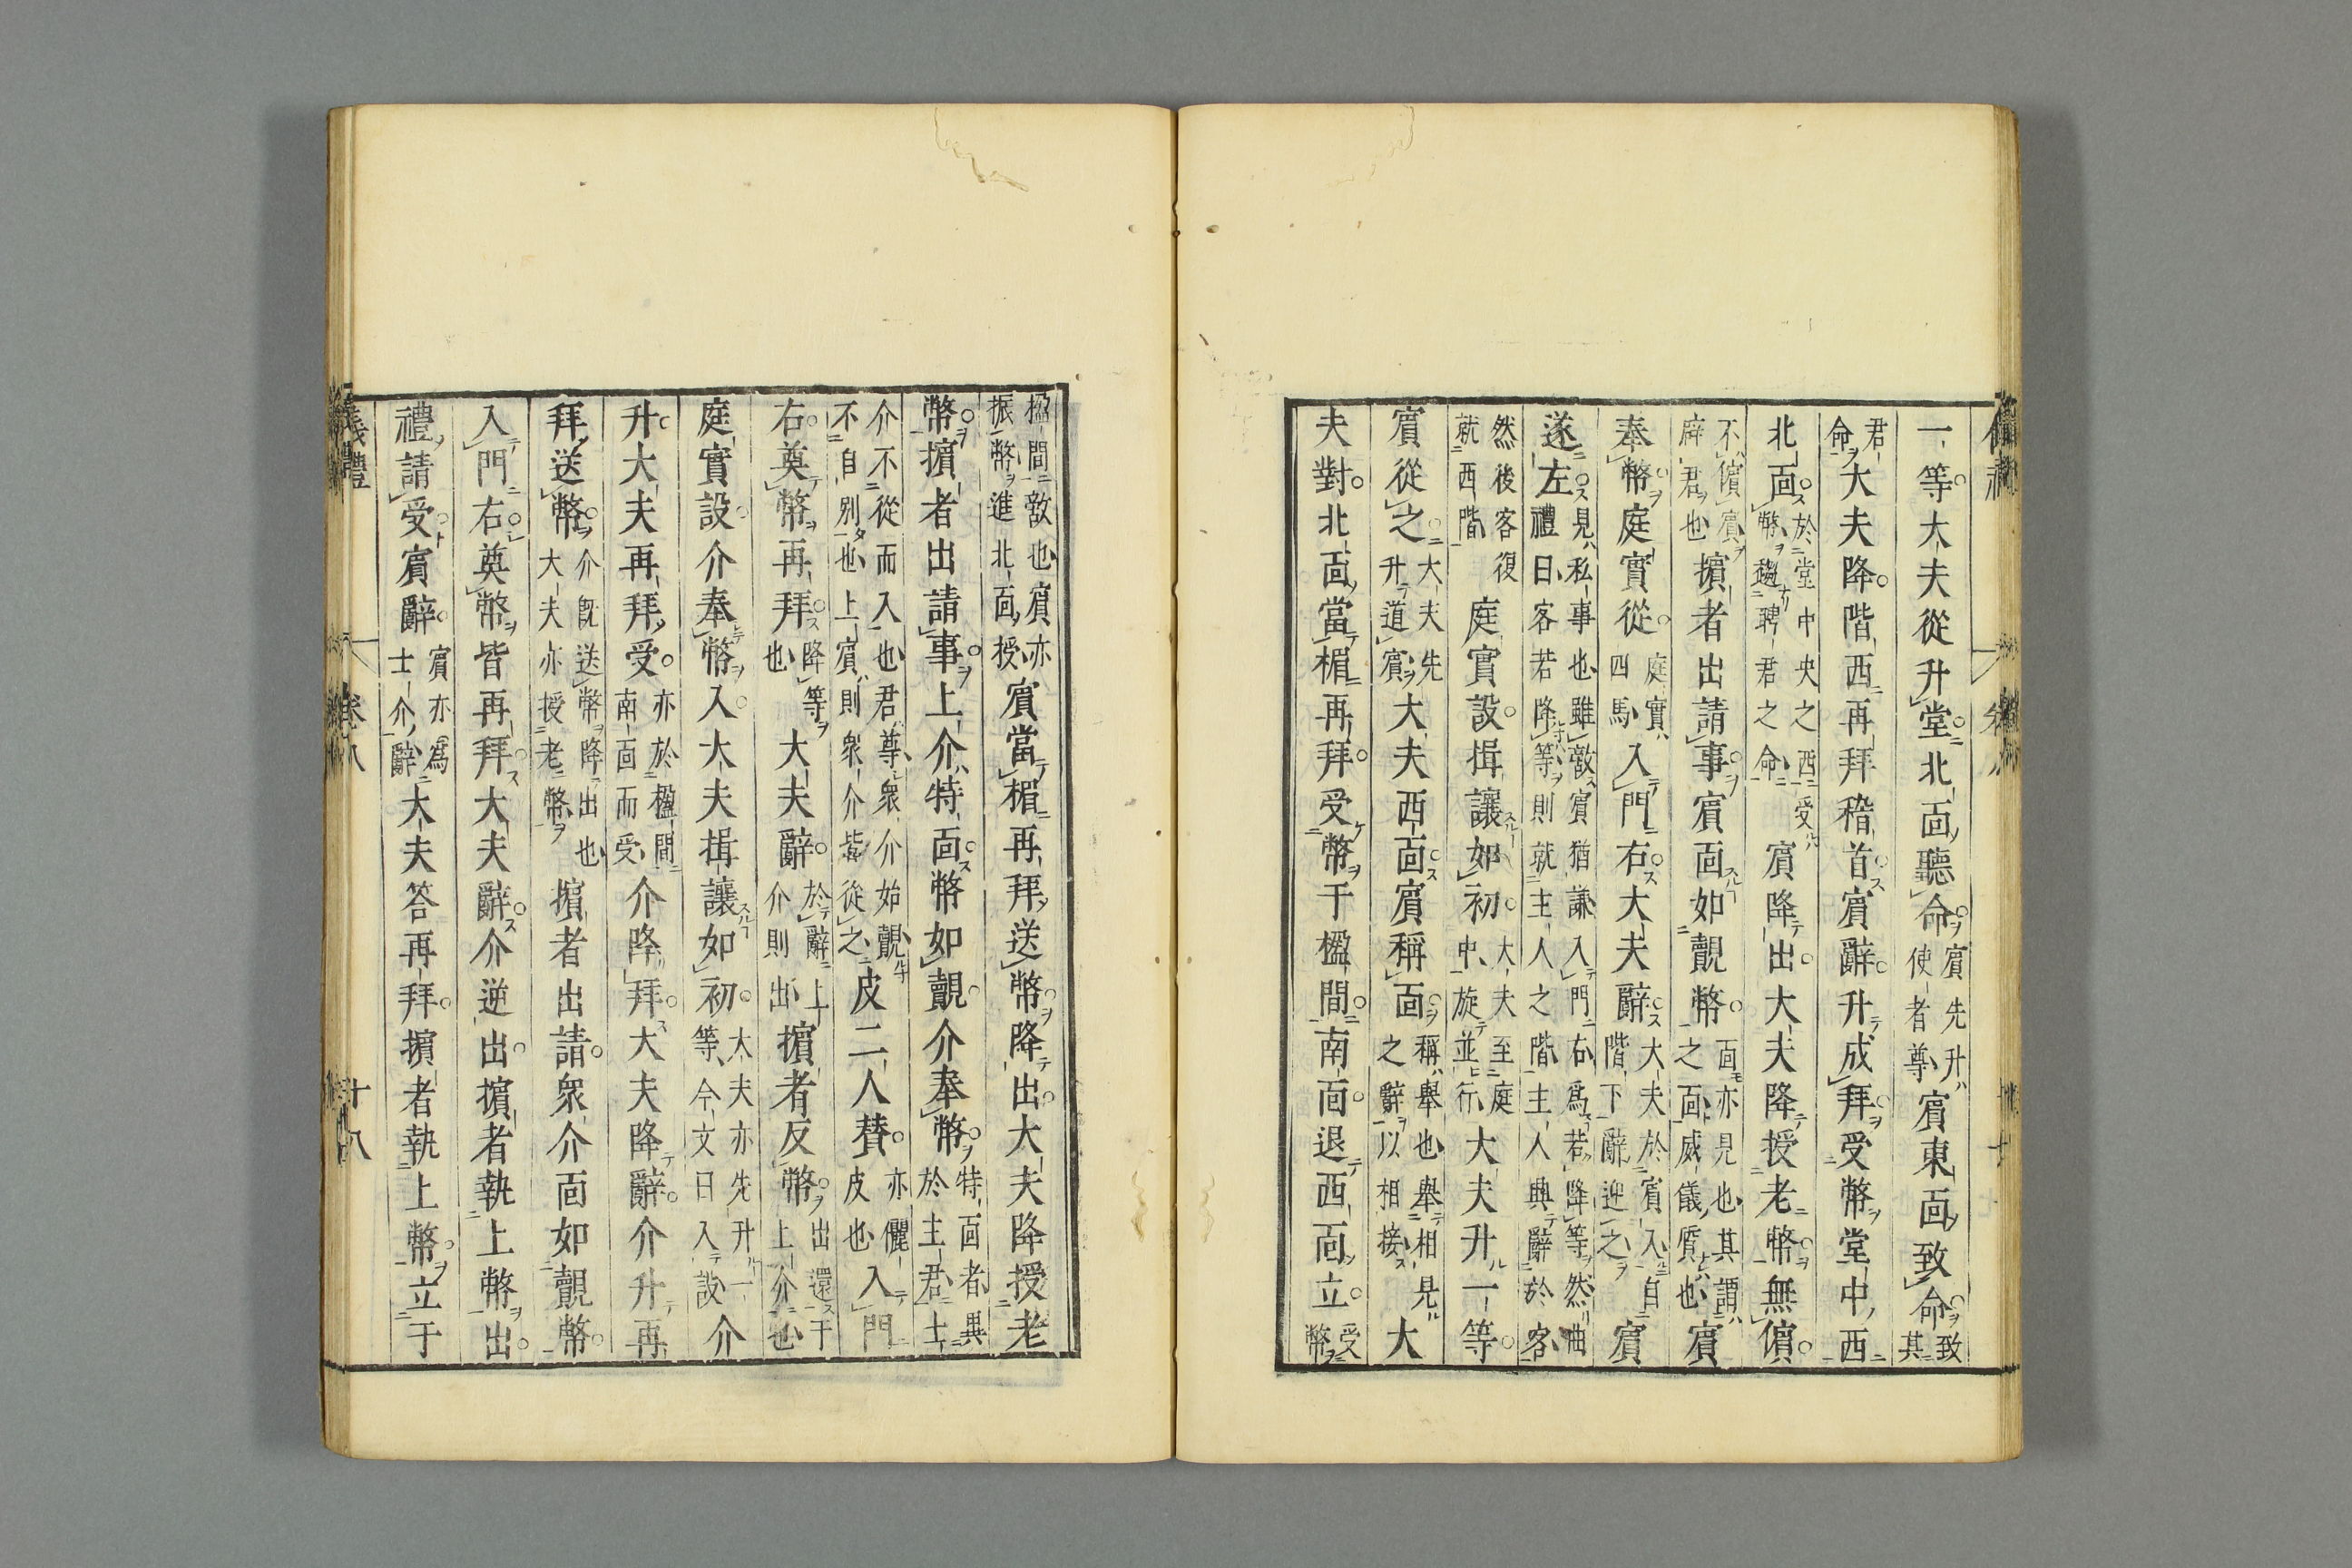 一等大夫從升堂北面聽命賓先升使者尊賓東面致命致其
君命大夫降階西再拜稽首賓辭升成拜受幣堂中西
北面於堂中央之西受幣趨聘君之命賓降出大夫降授老幣無儐
不儐賓辟君也擯者出請事賓面如覿幣面亦見也其謂之面威儀質也賓
奉幣庭實從庭實四馬入門右大夫辭大夫於賓入自階下辭迎之賓
遂左見私事也雖敵賓猶謙入門右爲若降等然曲禮曰客若降等則就主人之階主人與辭於客
然後客復就西階庭實設揖讓如初大夫至庭中旋並行大夫升一等
賓從之大夫先升道賓大夫西面賓稱面稱舉也舉相見之辭以相接大
夫對北面當楣再拜受幣于楹間南面退西面立受幣
楹間敵也賓亦振幣進北面授賓當楣再拜送幣降出大夫降授老
幣擯者出請事上介特面幣如覿介奉幣特面者異於主君士
介不從而入也君尊衆介始覿不自別也上賓則衆介皆從之皮二人贊亦儷皮也入門
右奠幣再拜降等也大夫辭於辭上介則出擯者反幣出還于上介也
庭實設介奉幣入大夫揖讓如初大夫亦先升一等今文曰入設介
升大夫再拜受亦於楹間南面而受介降拜大夫降辭介升再
拜送幣介既送幣降出也大夫亦授老幣擯者出請衆介面如覿幣
入門右奠幣皆再拜大夫辭介逆出擯者執上幣出
禮請受賓辭賓亦爲士介辭大夫答再拜擯者執上幣立于
儀禮 卷八 十八